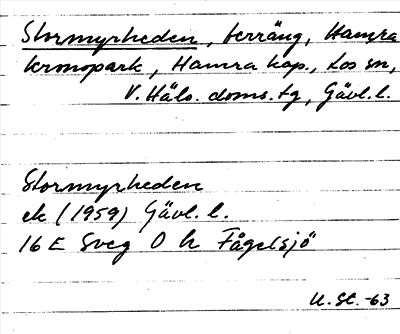 Stormyrheden, terräng, Hamra
kronopark, Hamra kap., Los sn,
V. Häls. doms. tg, Gävl. l.
Stormyrheden
ek (1959) Gävl. l.
16 E Sveg 0 h Fågelsjö
U. St. -63